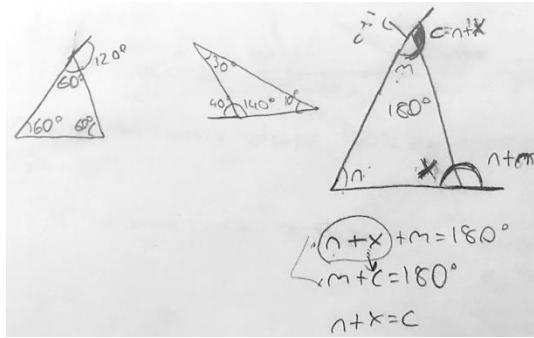 120°
60°
60°
60°
30°
40°
140°
10°
c=n+x
m
180°
n
x
n+m
n+x+m=180°
m+c=180°
n+x=c